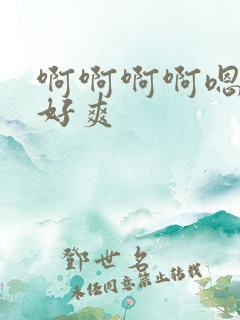 啊啊啊啊嗯
好爽
鄧世名
未经同意禁止转载